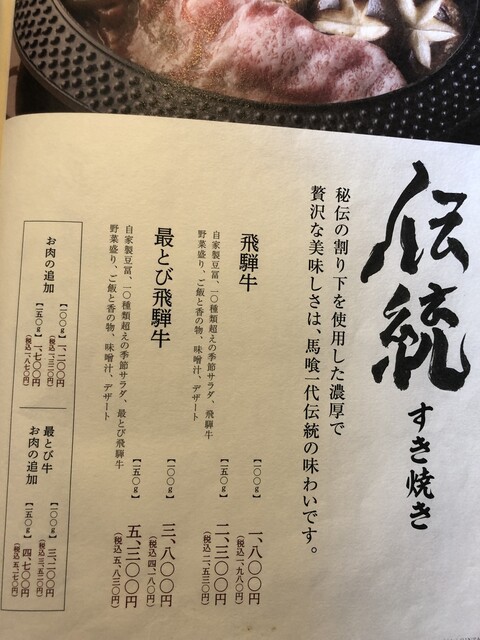 伝統すき焼き
秘伝の割り下を使用した濃厚で
贅沢な美味しさは、馬喰一代伝統の味わいです。
飛騨牛
自家製豆冨、一〇種類超えの季節サラダ、飛騨牛
野菜盛り、ご飯と香の物、味噌汁、デザート
【一〇〇g】 一、八〇〇円
(税込 一、九八〇円)
【一五〇g】 二、三〇〇円
(税込 二、五三〇円)
最とび飛騨牛
自家製豆冨、一〇種類超えの季節サラダ、最とび飛騨牛
野菜盛り、ご飯と香の物、味噌汁、デザート
【一〇〇g】 三、八〇〇円
(税込 四、一八〇円)
【一五〇g】 五、三〇〇円
(税込 五、八三〇円)
お肉の追加
【一〇〇g】 一、二〇〇円
(税込 一、三二〇円)
【一五〇g】 一、七〇〇円
(税込 一、八七〇円)
最とび牛
お肉の追加
【一〇〇g】 三、二〇〇円
(税込 三、五二〇円)
【一五〇g】 四、七〇〇円
(税込 五、一七〇円)